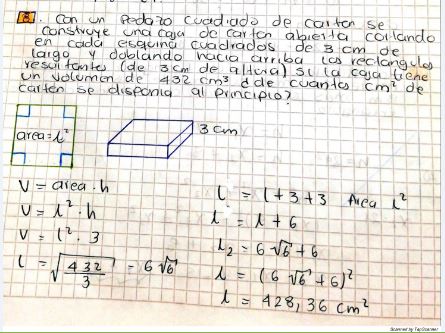 8. Con un Pedazo Cuadrado de carton se
construye una caja de carton abierta cortando
en cada esquina cuadrados de 3 cm de
largo y doblando hacia arriba los rectangulos
resultantes (de 3cm de altura) si la caja tiene
un volumen de 432 cm³ ¿de cuantos cm² de
carton se disponia al principio?
area = l²
3 cm
V = area · h
V = l² · h
V = l² · 3
l = √(432/3) = 6√6
l = l + 3 + 3 Area l²
l = l + 6
l₂ = 6√6 + 6
l = (6√6 + 6)²
l = 428,36 cm²
Scanned by TapScanner